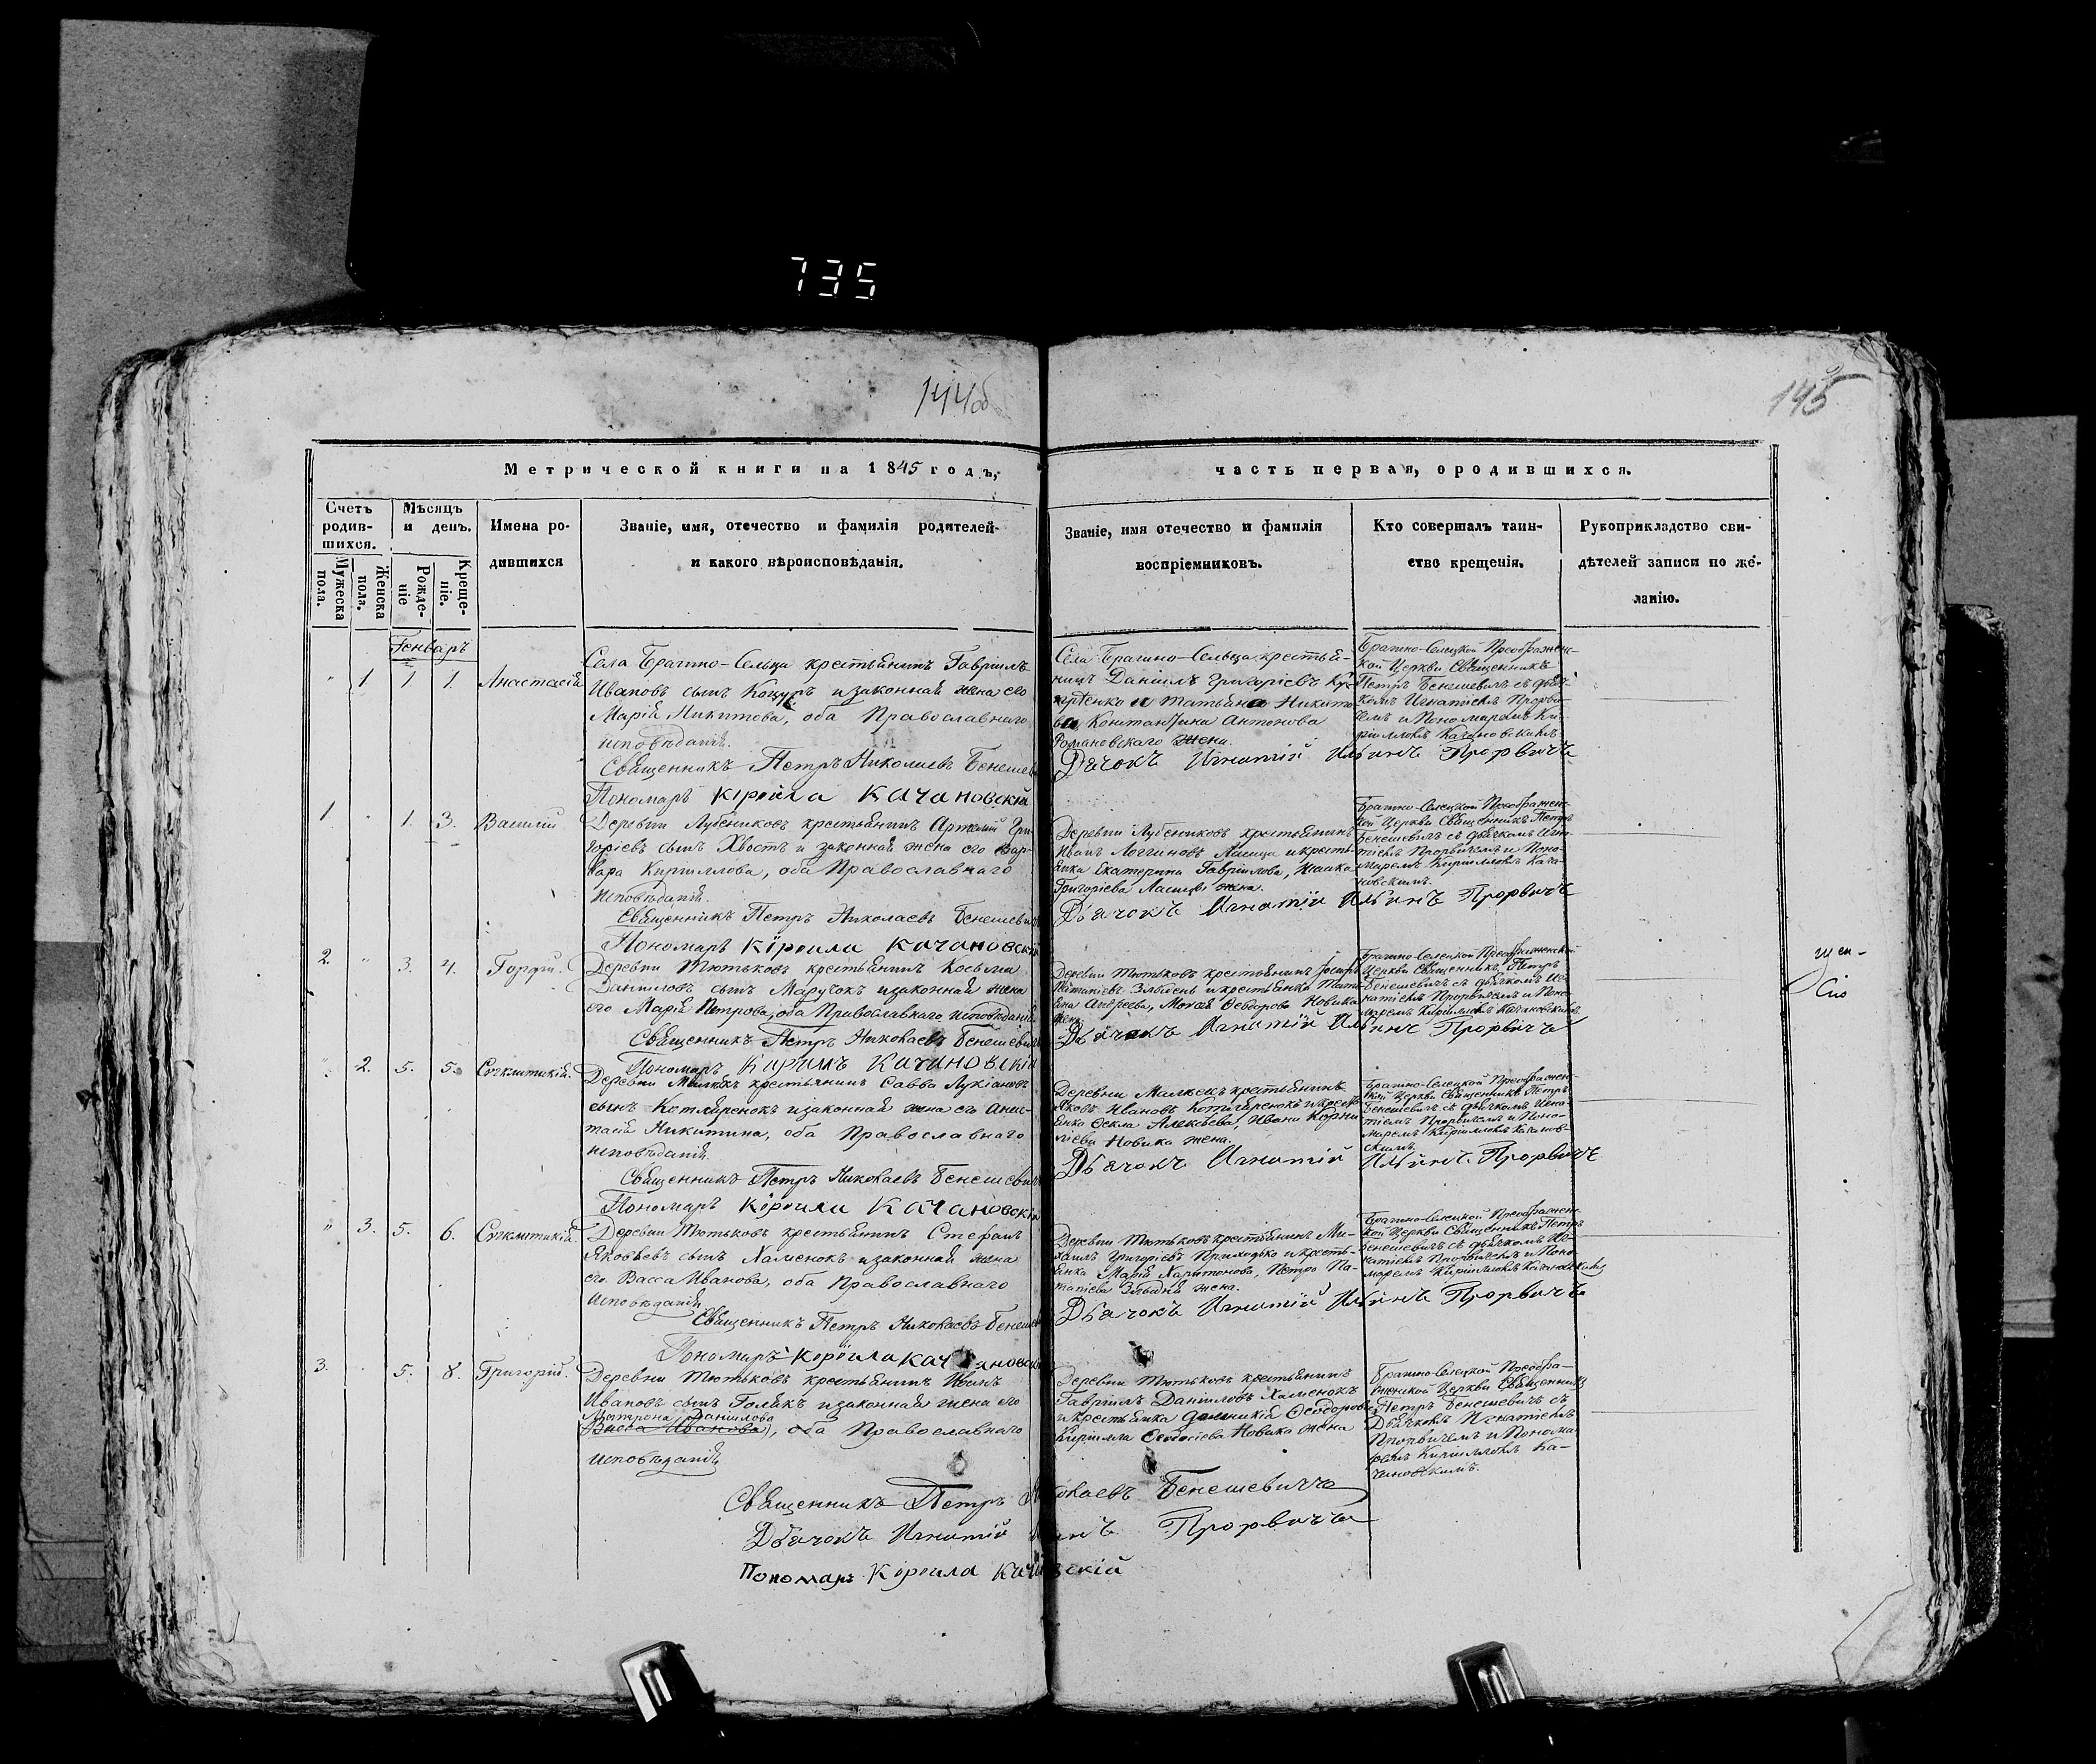 735
144об
145
Метрической книги на 1845 годъ,
часть первая, ородившихся.
Счетъ родив-шихся.
Мѣсяцъ и день.
Имена ро-
дившихся
Званіе, имя, отечество и фамилія родителей
и какого вѣроисповѣданія.
Званіе, имя отечество и фамилія
воспріемниковъ.
Кто совершалъ таин-
ство крещенія.
Рукоприкладство сви-
дѣтелей записи по же-
ланію.
Мужеска пола.
Женска пола.
Рожде-ніе
Креще-ніе.
Генваръ
" 1 1 1. Анастасія
Села Брагино-Сельца крестьянинъ Гавріилъ
Ивановъ сынъ Коцуръ изаконная жена его
Марія Никитова, оба Православнаго
исповѣданія.
Священникъ Петръ Николаевъ Бенешев
Пономаръ Кіріила Качановскій
Села Брагино-Сельца крестьѧ-
нинъ Даніилъ Григоріевъ
и Татьяна Никито
ва Константина Антонова
Романовскаго жена.
Дьячокъ Игнатій Ильинъ Прорвичъ
Брагино-Селецкой Преображенс-
кой Церкви Священникъ
Петръ Бенешевичъ съ дьяч-
комъ Игнатіемъ Прорви-
чемъ и Пономаремъ Ки-
рилломъ Качановскимъ
1 " 1. 3. Василій
Деревни Лубениковъ крестьянинъ Артемій Гри-
горіевъ сынъ Хвостъ и законная жена его Вар-
вара Кириллова, оба Православнаго
исповѣданія.
Священникъ Петръ Николаевъ Бенешевич
Пономаръ Кіріила Качановскій
Деревни Лубениковъ крестьянинъ
Иванъ Логгиновъ Ласица икресть-
янка Екатерина Гавріилова,
Григоріева Ласицы жена.
Дьячокъ Игнатій Ильинъ Прорвичъ
Брагино-Селецкой Преображенс-
кой Церкви Священникъ Петръ
Бенешевичъ съ дьячкомъ Игна-
тіемъ Прорвичемъ и Поно-
маремъ Кирилломъ Кача-
новскимъ.
2. " 3. 4. Гордій.
Деревни Тютьковъ крестьянинъ Косьма
Даниловъ сынъ Маручокъ изаконная жена
его Марія Петрова, оба Православнаго исповѣданія
Священникъ Петръ Николаевъ Бенешевич
Пономаръ Кирилъ Качановскій
Деревни Тютьковъ крестьянинъ
икрестьянка Тать-
яна Андреева, Моисея Ѳеодорова Новика
жена.
Дьячокъ Игнатій Ильинъ Прорвичъ
Брагино-Селецкой Преображенской
Церкви Священникъ Петръ
Бенешевичъ съ дьячкомъ Иг-
натіемъ Прорвичемъ и Поно-
маремъ Кирилломъ Качановскимъ
" 2. 5. 5.
Деревни крестьянинъ Савва Лукіановъ
сынъ Котляренокъ изаконная жена его Анас-
тасія Никитина, оба Православнаго
исповѣданія.
Священникъ Петръ Николаевъ Бенешевич
Пономаръ Кіріила Качановскій
Деревни крестьянинъ
Яковъ Ивановъ Котляренокъ икресть-
янка Ѳекла Алексѣева, Ивана Корни-
ліева Новика жена.
Дьячокъ Игнатій Ильинъ Прорвичъ
Брагино-Селецкой Преображен-
ской Церкви Священникъ Петръ
Бенешевичъ съ дьячкомъ Игна-
тіемъ Прорвичемъ и Поно-
маремъ Кирилломъ Качанов-
скимъ.
" 3. 5. 6.
Деревни Тютьковъ крестьянинъ Стефанъ
Яковлевъ сынъ Хаменокъ изаконная жена
его Васса Иванова, оба Православнаго
исповѣданія
Священникъ Петръ Николаевъ Бенеше
Пономаръ Кіріила Качановскій
Деревни Тютьковъ крестьянинъ Ми-
хаилъ Григоріевъ Приходько икресть-
янка Марія Харитонова, Петра
жена.
Дьячокъ Игнатій Ильинъ Прорвичъ
Брагино-Селецкой Преображенс-
кой Церкви Священникъ Петръ
Бенешевичъ съ дьячкомъ Иг-
натіемъ Прорвичемъ и Поно-
маремъ Кирилломъ Качановскимъ
3. 5. 8. Григорій.
Деревни Тютьковъ крестьянинъ Иванъ
Ивановъ сынъ Голякъ изаконная жена его
Матрона Данилова
Васса Иванова, оба Православнаго
исповѣданія
Деревни Тютьковъ крестьянинъ
Гавріилъ Даниловъ Хаменокъ
икрестьянка Ѳеодорова,
Кирилла Новика жена
Брагино-Селецкой Преобра-
женской Церкви Священникъ
Петръ Бенешевичъ съ
Дьячкомъ Игнатіемъ
Прорвичемъ и Понома-
ремъ Кирилломъ Ка-
чановскимъ.
Священникъ Петръ Николаевъ Бенешевичъ
Дьячокъ Игнатій Ильинъ Прорвичъ
Пономаръ Кіріила Качановскій